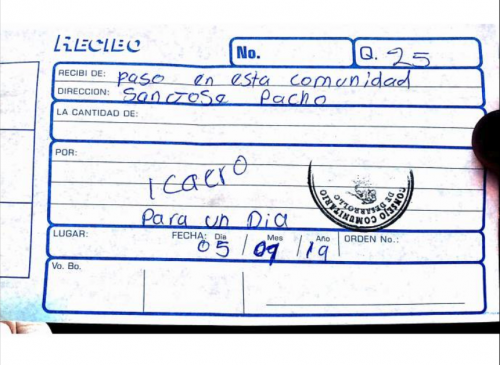 RECIBO
No.
Q. 25
RECIBI DE: paso en esta comunidad
DIRECCION: San Jose Pacho
LA CANTIDAD DE:
POR:
1 caero
Para un Dia
CONSEJO COMUNITARIO
DE DESARROLLO
LUGAR: FECHA: Dia 05 / Mes 09 / Año 19 ORDEN No.:
Vo. Bo.